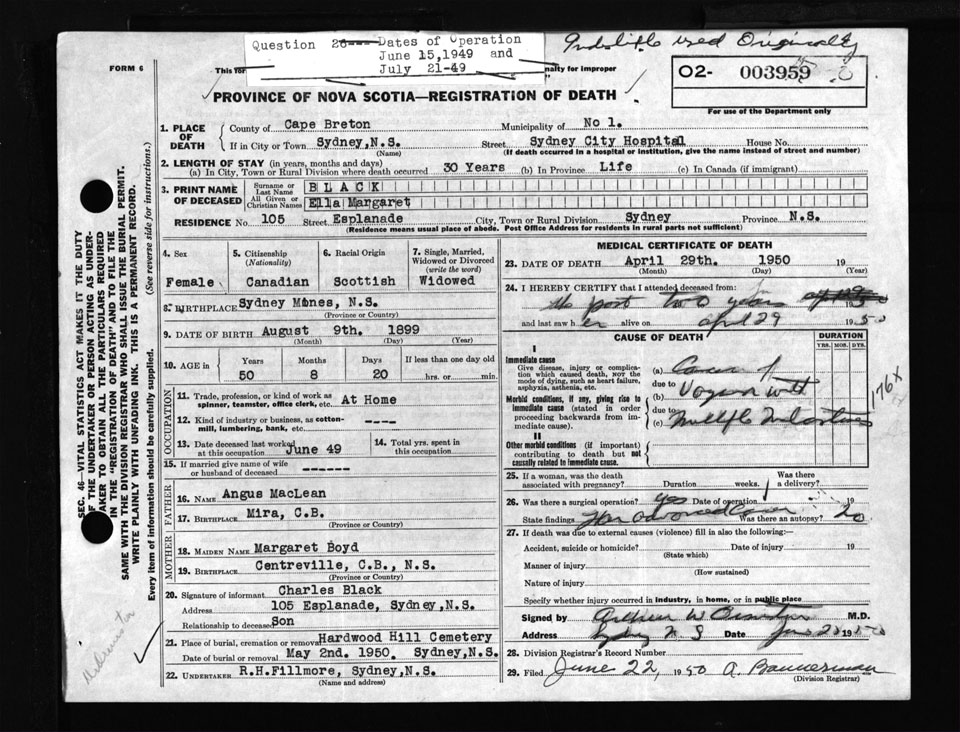 Question 26--- Dates of Operation
June 15,1949 and
July 21-49
used Originally
FORM 6
This for
nalty for improper
O2- 003959
For use of the Department only
PROVINCE OF NOVA SCOTIA—REGISTRATION OF DEATH
1. PLACE OF DEATH
County of Cape Breton Municipality of No 1.
If in City or Town Sydney,N.S. Street Sydney City Hospital House No.
(Name) (If death occurred in a hospital or institution, give the name instead of street and number)
2. LENGTH OF STAY (in years, months and days)
(a) In City, Town or Rural Division where death occurred 30 Years (b) In Province Life (c) In Canada (if immigrant)
3. PRINT NAME OF DECEASED
Surname or Last Name BLACK
All Given or Christian Names Ella Margaret
RESIDENCE No. 105 Street Esplanade City, Town or Rural Division Sydney Province N.S.
(Residence means usual place of abode. Post Office Address for residents in rural parts not sufficient)
4. Sex
Female
5. Citizenship (Nationality)
Canadian
6. Racial Origin
Scottish
7. Single, Married, Widowed or Divorced (write the word)
Widowed
8. BIRTHPLACE Sydney Mines, N.S.
(Province or Country)
9. DATE OF BIRTH August 9th. 1899
(Month) (Day) (Year)
10. AGE in
Years Months Days If less than one day old
50 8 20 hrs. or min.
OCCUPATION
11. Trade, profession, or kind of work as spinner, teamster, office clerk, etc. At Home
12. Kind of industry or business, as cotton-mill, lumbering, bank, etc. ----
13. Date deceased last worked at this occupation June 49
14. Total yrs. spent in this occupation
15. If married give name of wife or husband of deceased ------
FATHER
16. NAME Angus MacLean
17. BIRTHPLACE Mira, C.B.
(Province or Country)
MOTHER
18. MAIDEN NAME Margaret Boyd
19. BIRTHPLACE Centreville, C.B., N.S.
(Province or Country)
20. Signature of informant Charles Black
Address 105 Esplanade, Sydney,N.S.
Relationship to deceased Son
21. Place of burial, cremation or removal Hardwood Hill Cemetery
Date of burial or removal May 2nd. 1950. Sydney,N.S.
22. UNDERTAKER R.H.Fillmore, Sydney,N.S.
(Name and address)
MEDICAL CERTIFICATE OF DEATH
23. DATE OF DEATH April 29th. 1950 19
(Month) (Day) (Year)
24. I HEREBY CERTIFY that I attended deceased from:
the past two years
and last saw her alive on April 29 1950
CAUSE OF DEATH
DURATION
YRS. MOS. DYS.
I
Immediate cause
Give disease, injury or complication which caused death, NOT the mode of dying, such as heart failure, asphyxia, asthenia, etc.
(a) Cancer of
due to
Morbid conditions, if any, giving rise to immediate cause (stated in order proceeding backwards from immediate cause).
(b) Vagina with
due to
(c) Multiple Metastases
176X
II
Other morbid conditions (if important) contributing to death but not causally related to immediate cause.
25. If a woman, was the death associated with pregnancy? Duration weeks. Was there a delivery?
26. Was there a surgical operation? yes Date of operation 19
State findings Far advanced Cancer Was there an autopsy? no
27. If death was due to external causes (violence) fill in also the following:—
Accident, suicide or homicide? Date of injury 19
(State which)
Manner of injury
(How sustained)
Nature of injury
Specify whether injury occurred in industry, in home, or in public place
Signed by Arthur W M.D.
Address Sydney N S Date 1950
28. Division Registrar's Record Number
29. Filed June 22, 1950 A. Bannerman
(Division Registrar)
SEC. 46—VITAL STATISTICS ACT MAKES IT THE DUTY
OF THE UNDERTAKER OR PERSON ACTING AS UNDER-
TAKER TO OBTAIN ALL THE PARTICULARS REQUIRED
IN THE "REGISTRATION OF DEATH" AND TO FILE THE
SAME WITH THE DIVISION REGISTRAR WHO SHALL ISSUE THE BURIAL PERMIT.
WRITE PLAINLY WITH UNFADING INK. THIS IS A PERMANENT RECORD.
Every item of information should be carefully supplied. (See reverse side for instructions.)